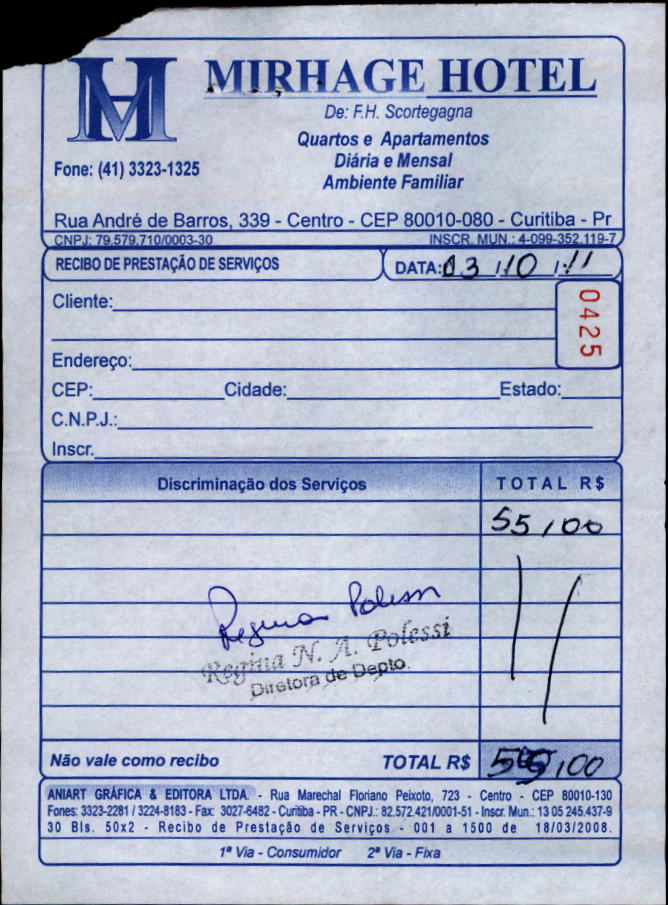 H
MIRHAGE HOTEL
De: F.H. Scortegagna
Quartos e Apartamentos
Diária e Mensal
Ambiente Familiar
Fone: (41) 3323-1325
Rua André de Barros, 339 - Centro - CEP 80010-080 - Curitiba - Pr
CNPJ: 79.579.710/0003-30 INSCR. MUN.: 4-099-352.119-7
RECIBO DE PRESTAÇÃO DE SERVIÇOS DATA: 03 / 10 / 11
Cliente:
0425
Endereço:
CEP: Cidade: Estado:
C.N.P.J.:
Inscr.
Discriminação dos Serviços TOTAL R$
55,00
Regina Polessi
Regina N. A. Polessi
Diretora de Depto.
Não vale como recibo TOTAL R$ 55,00
ANIART GRÁFICA & EDITORA LTDA. - Rua Marechal Floriano Peixoto, 723 - Centro - CEP 80010-130
Fones: 3323-2281 / 3224-8183 - Fax: 3027-6482 - Curitiba - PR - CNPJ.: 82.572.421/0001-51 - Inscr. Mun.: 13 05 245.437-9
30 Bls. 50x2 - Recibo de Prestação de Serviços - 001 a 1500 de 18/03/2008.
1ª Via - Consumidor 2ª Via - Fixa